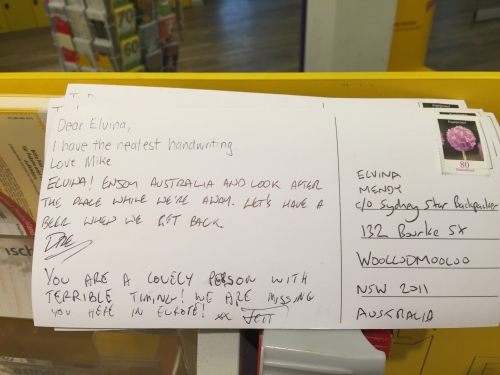 Dear Elvina,
I have the neatest handwriting
Love Mike
ELVINA! ENJOY AUSTRALIA AND LOOK AFTER
THE PLACE WHILE WE'RE AWAY. LET'S HAVE A
BEER WHEN WE GET BACK.
YOU ARE A LOVELY PERSON WITH
TERRIBLE TIMING! WE ARE MISSING
YOU HERE IN EUROPE! xx JETT
80
ELVINA
MENDY
c/o Sydney Star Backpacker
132 Bourke St
WOOLLOOMOOLOO
NSW 2011
AUSTRALIA
70
60